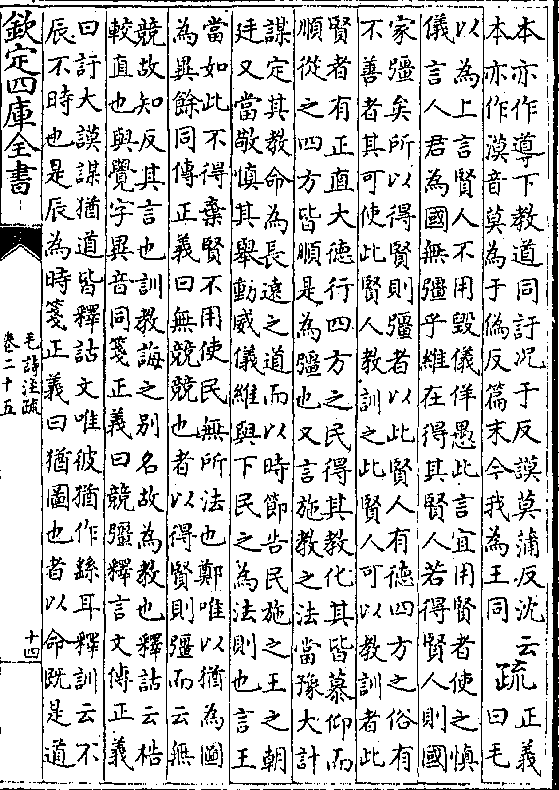 本亦作導下教道同訏况于反謨莫蒲反沈云
本亦作漠音莫為于偽反篇末今我為王同
疏
正義
曰毛
以為上言賢人不用毀儀佯愚此言宜用賢者使之慎
儀言人君為國無彊乎維在得其賢人若得賢人則國
家彊矣所以得賢則彊者以此賢人有德四方之俗有
不善者其可使此賢人教訓之此賢人可以教訓者此
賢者有正直大德行四方之民得其教化其皆慕仰而
順從之四方皆順是為彊也又言施教之法當豫大計
謀定其教命為長遠之道而以時節告民施之王之朝
廷又當敬慎其舉動威儀維與下民之為法則也言王
當如此不得棄賢不用使民無所法也鄭唯以猶為圖
為異餘同傳正義曰無競競也者以得賢則彊而云無
競故知反其言也訓教誨之別名故為教也釋詁云梏
較直也與覺字異音同箋正義曰競彊釋言文傳正義
曰訏大謨謀猶道皆釋詁文唯彼猶作繇耳釋訓云不
辰不時也是辰為時箋正義曰猶圖也者以命既是道
欽定四庫全書
毛詩注疏
卷二十五
十四